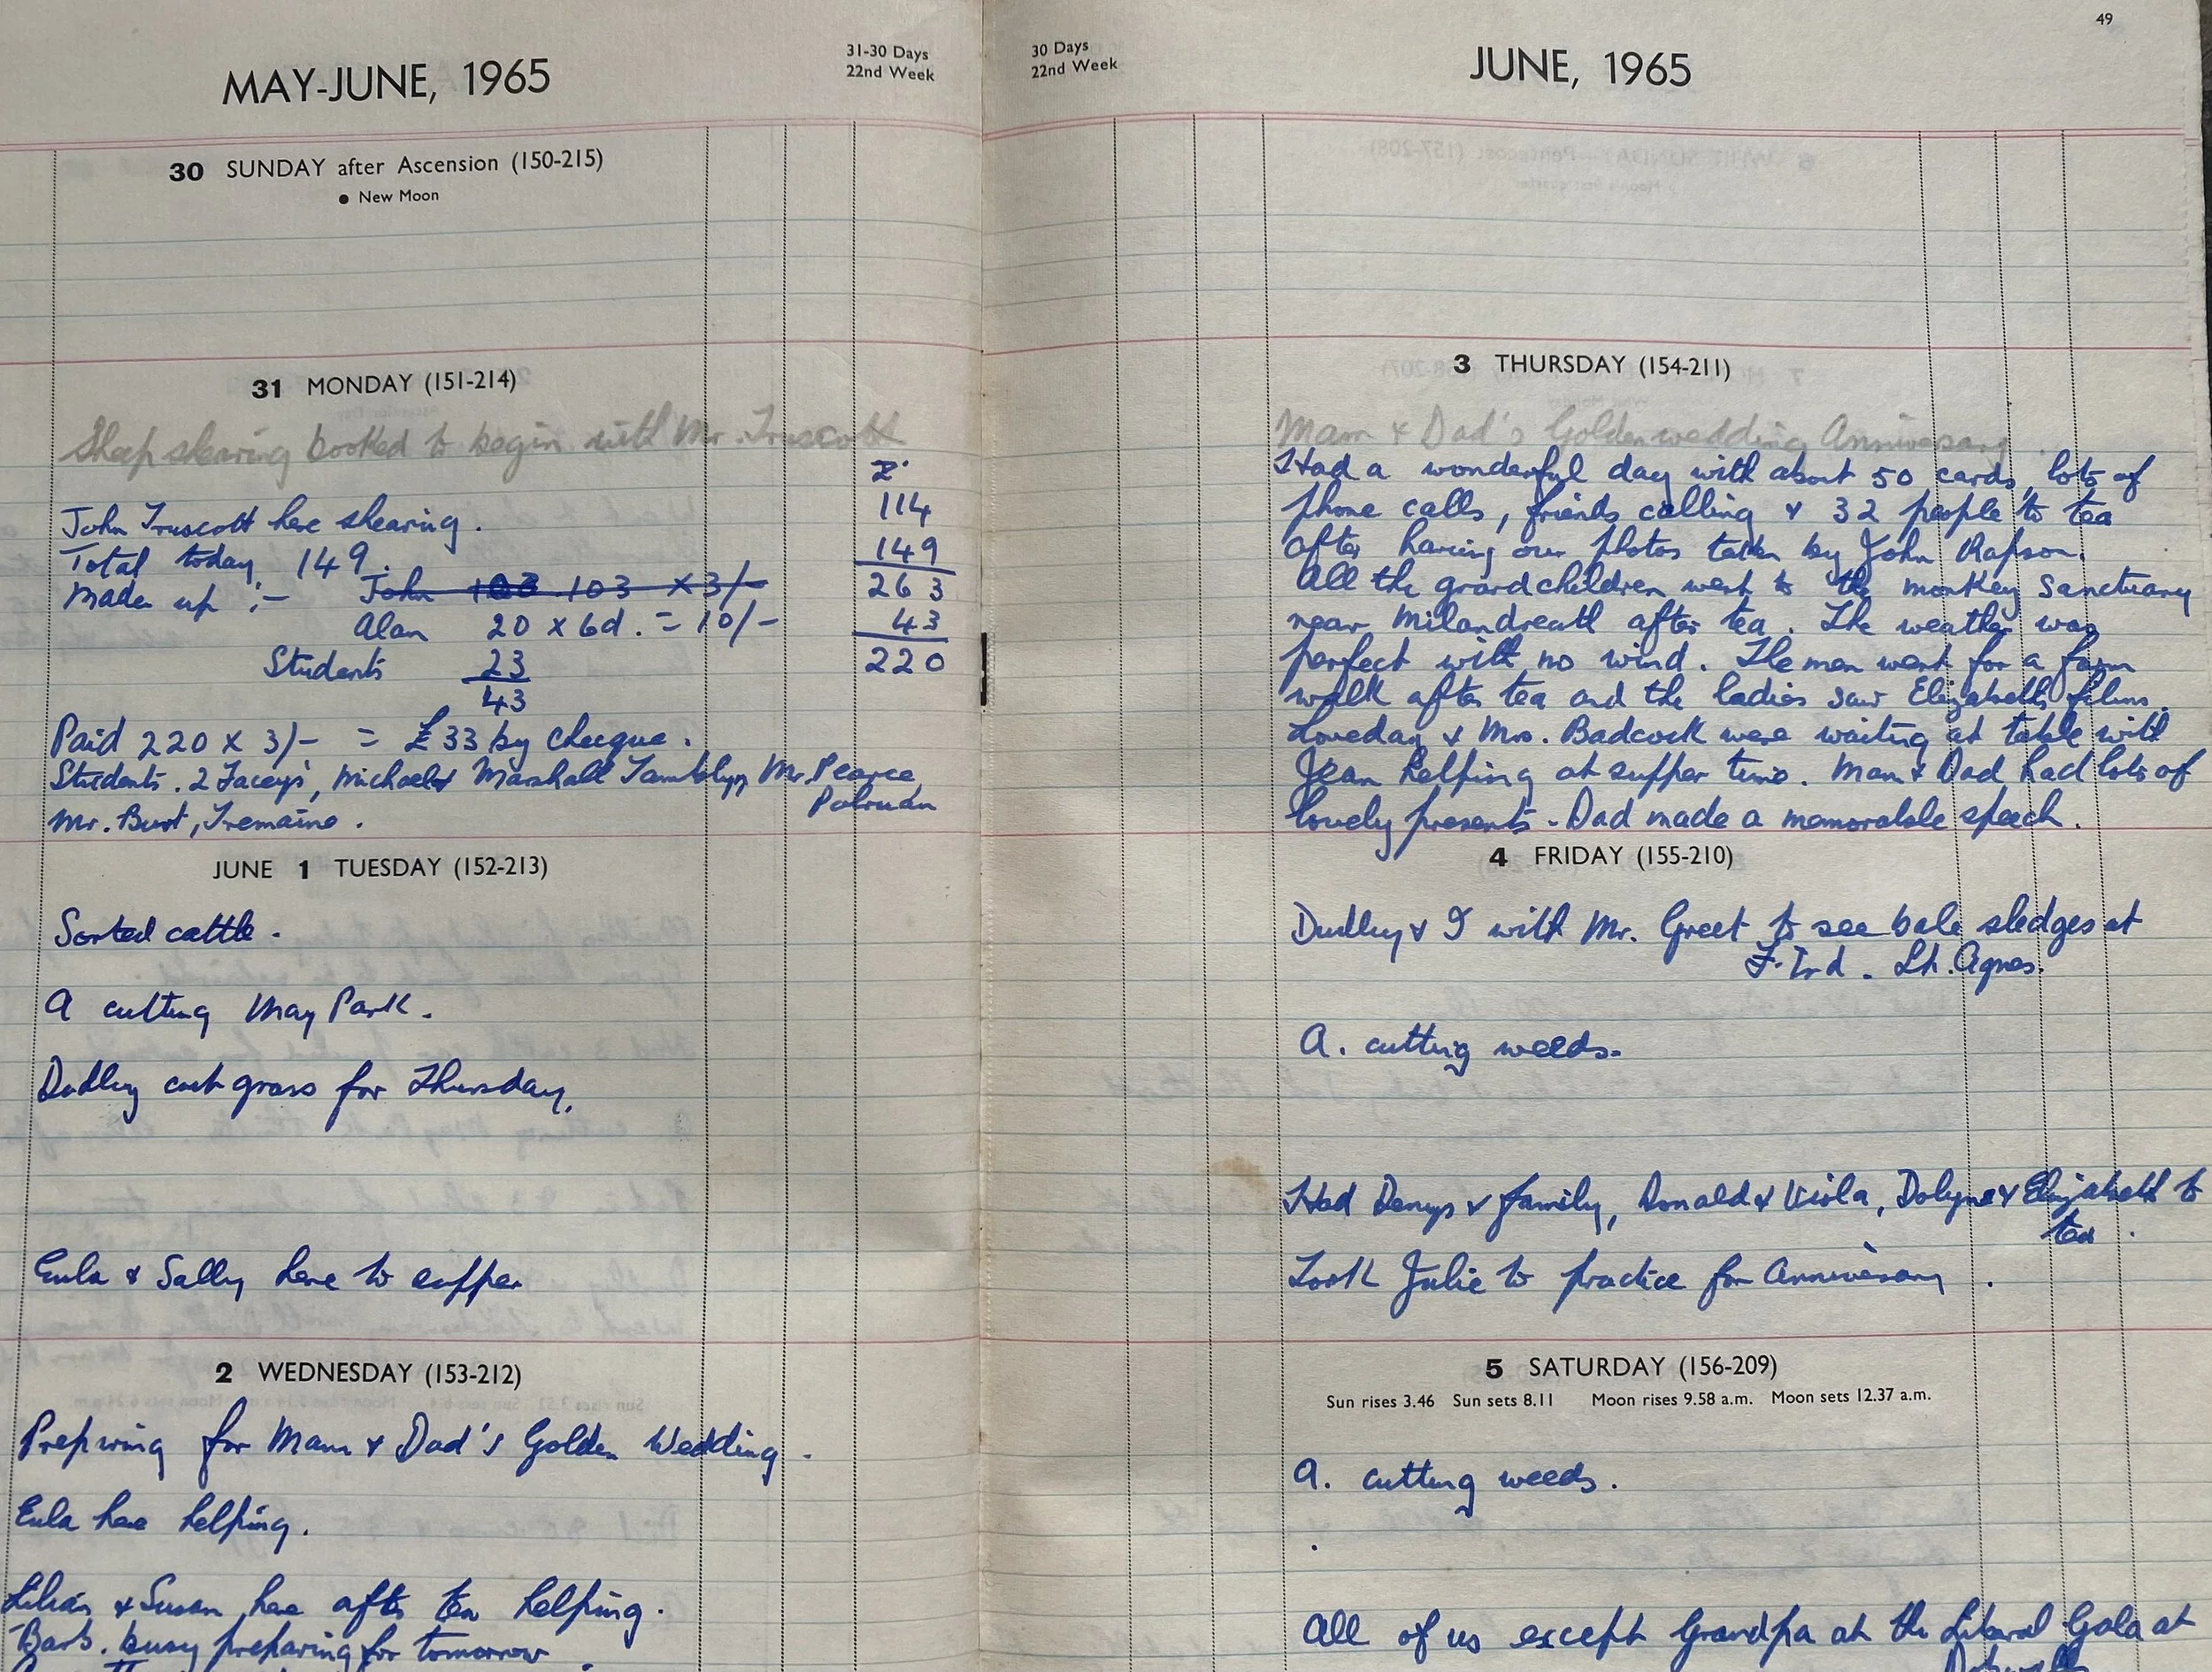 MAY-JUNE, 1965
31-30 Days
22nd Week
30 SUNDAY after Ascension (150-215)
● New Moon
31 MONDAY (151-214)
Sheep shearing booked to begin with Mr. Truscott
John Truscott here shearing.
Total today, 149.
Made up :- John 103 103 x 3/-
Alan 20 x 6d. = 10/-
Students 23
43
114
149
263
43
220
Paid 220 x 3/- = £33 by cheque.
Students. 2 Facey's, Michael & Marshall Tamblyn, Mr. Pearce,
Polruan
Mr. Burt, Tremaine.
JUNE 1 TUESDAY (152-213)
Sorted cattle.
A cutting May Park.
Dudley cut grass for Thursday.
Eula & Sally here to supper
2 WEDNESDAY (153-212)
Preparing for Mam & Dad's Golden Wedding.
Eula here helping.
Lilian & Susan here after tea helping.
Barb. busy preparing for tomorrow
49
30 Days
22nd Week
JUNE, 1965
3 THURSDAY (154-211)
Mam & Dad's Golden wedding Anniversary.
Had a wonderful day with about 50 cards, lots of
phone calls, friends calling & 32 people to tea
after having our photos taken by John Rapson.
All the grandchildren went to the monkey sanctuary
near Milandreath after tea. The weather was
perfect with no wind. The men went for a farm
walk after tea and the ladies saw Elizabeth's films.
Loveday & Mrs. Badcock were waiting at table with
Jean helping at supper time. Mam & Dad had lots of
lovely presents - Dad made a memorable speech.
4 FRIDAY (155-210)
Dudley & I with Mr. Greet to see bale sledges at
St. Agnes.
A. cutting weeds.
Had Denys & family, Donald & Viola, Dolyne & Elizabeth to
tea.
Took Julie to practice for Anniversary.
5 SATURDAY (156-209)
Sun rises 3.46 Sun sets 8.11 Moon rises 9.58 a.m. Moon sets 12.37 a.m.
A. cutting weeds.
All of us except Grandpa at the Liberal Gala at